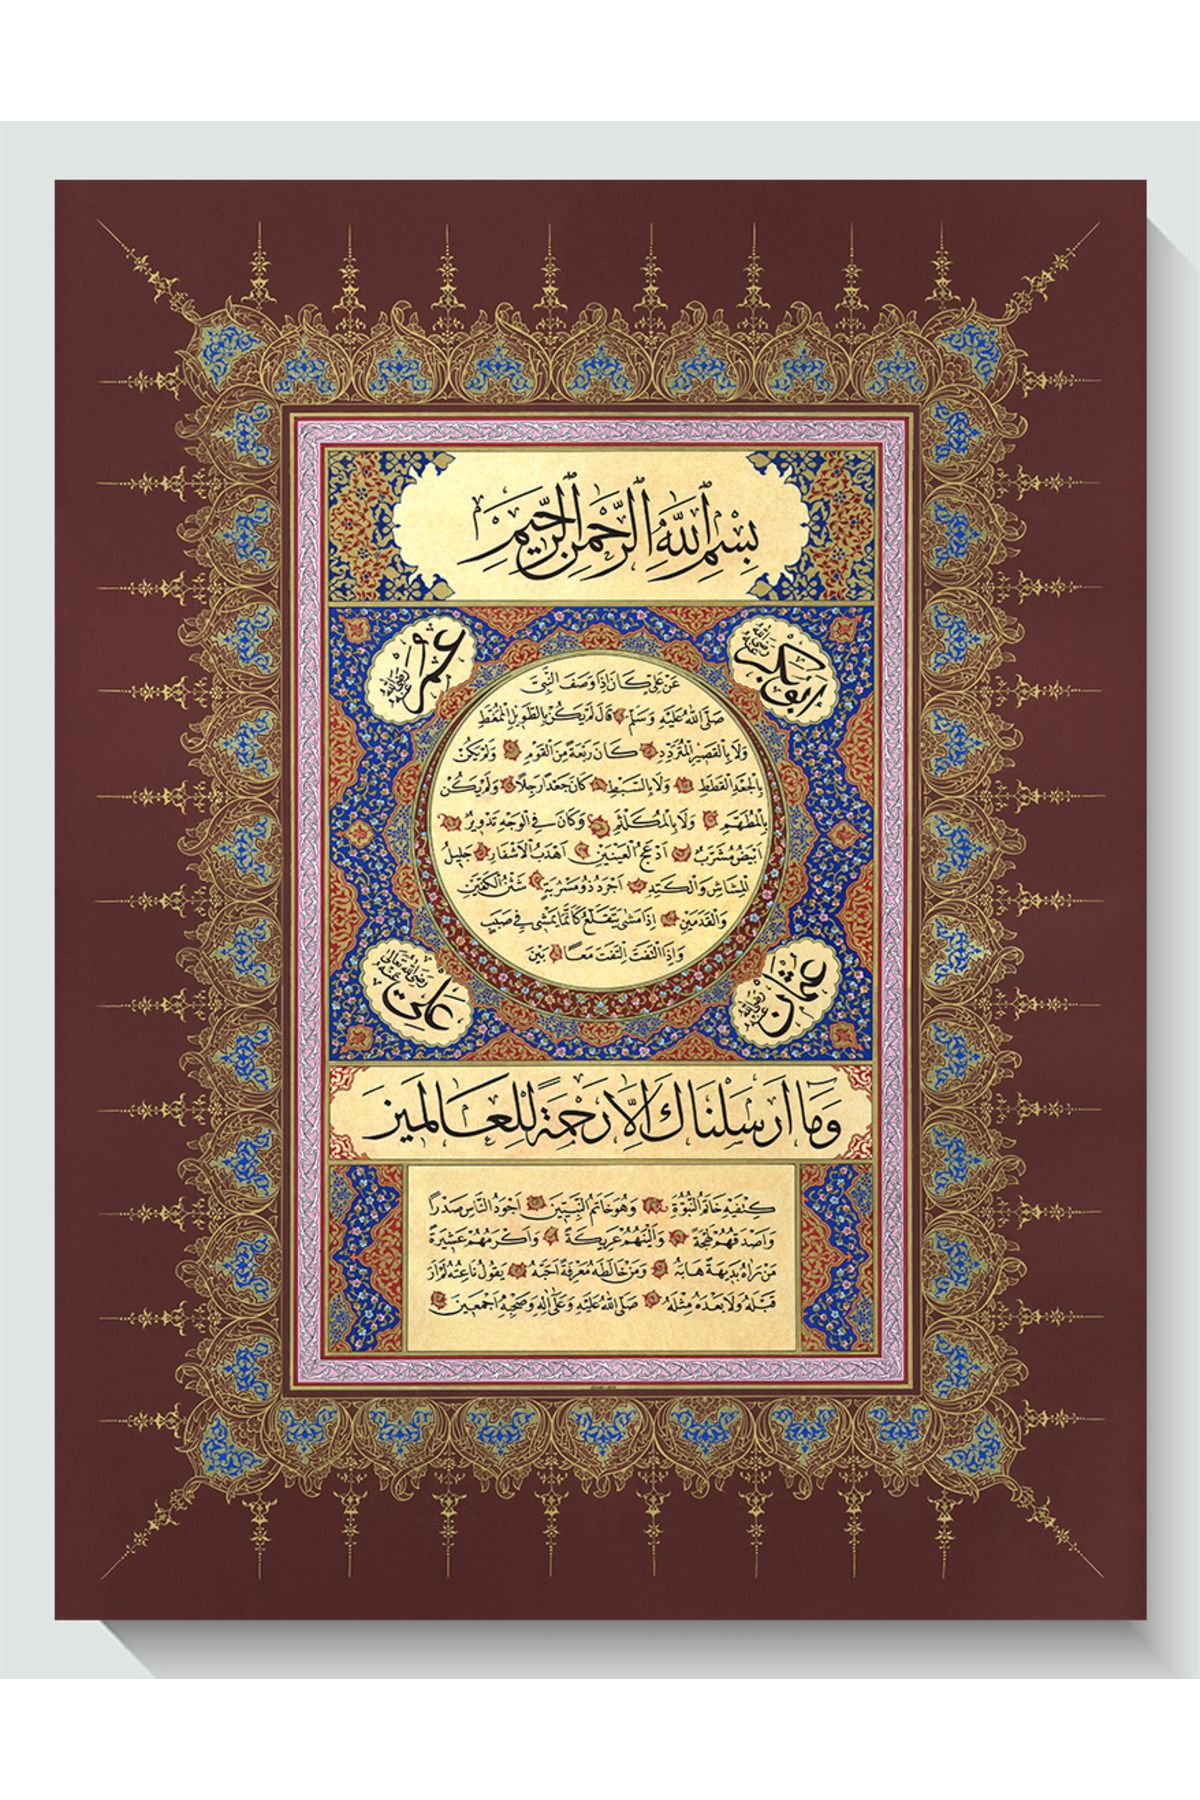 بِسْمِ اللَّهِ الرَّحْمٰنِ الرَّحِيمِ
ابوبكر رضي الله عنه
عمر رضي الله عنه
عَنْ عَلِيٍّ كَانَ اِذَا وَصَفَ النَّبِيَّ
صَلَّى اللهُ عَلَيْهِ وَسَلَّمَ قَالَ لَمْ يَكُنْ بِالطَّوِيلِ الْمُمَّغِطِ
وَلَا بِالْقَصِيرِ الْمُتَرَدِّدِ كَانَ رَبْعَةً مِنَ الْقَوْمِ وَلَمْ يَكُنْ
بِالْجَعْدِ الْقَطَطِ وَلَا بِالسَّبِطِ كَانَ جَعْدًا رَجِلًا وَلَمْ يَكُنْ
بِالْمُطَهَّمِ وَلَا بِالْمُكَلْثَمِ وَكَانَ فِي الْوَجْهِ تَدْوِيرٌ
اَبْيَضُ مُشْرَبٌ اَدْعَجُ الْعَيْنَيْنِ اَهْدَبُ الْاَشْفَارِ جَلِيلُ
الْمُشَاشِ وَالْكَتَدِ اَجْرَدُ ذُو مَسْرُبَةٍ شَثْنُ الْكَفَّيْنِ
وَالْقَدَمَيْنِ اِذَا مَشٰى يَتَقَلَّعُ كَاَنَّمَا يَمْشِي فِي صَبَبٍ
وَاِذَا الْتَفَتَ اِلْتَفَتَ مَعًا بَيْنَ
عثمان رضي الله عنه
علي رضي الله تعالى عنه
وَمَا اَرْسَلْنَاكَ اِلَّا رَحْمَةً لِلْعَالَمِينَ
كِتْفَيْهِ خَاتَمُ النُّبُوَّةِ وَهُوَ خَاتَمُ النَّبِيِّينَ اَجْوَدُ النَّاسِ صَدْرًا
وَاَصْدَقُهُمْ لَهْجَةً وَاَلْيَنُهُمْ عَرِيكَةً وَاَكْرَمُهُمْ عَشِيرَةً
مَنْ رَاٰهُ بَدِيهَةً هَابَهُ وَمَنْ خَالَطَهُ مَعْرِفَةً اَحَبَّهُ يَقُولُ نَاعِتُهُ لَمْ اَرَ
قَبْلَهُ وَلَا بَعْدَهُ مِثْلَهُ صَلَّى اللهُ عَلَيْهِ وَعَلٰى اٰلِهِ وَصَحْبِهِ اَجْمَعِينَ